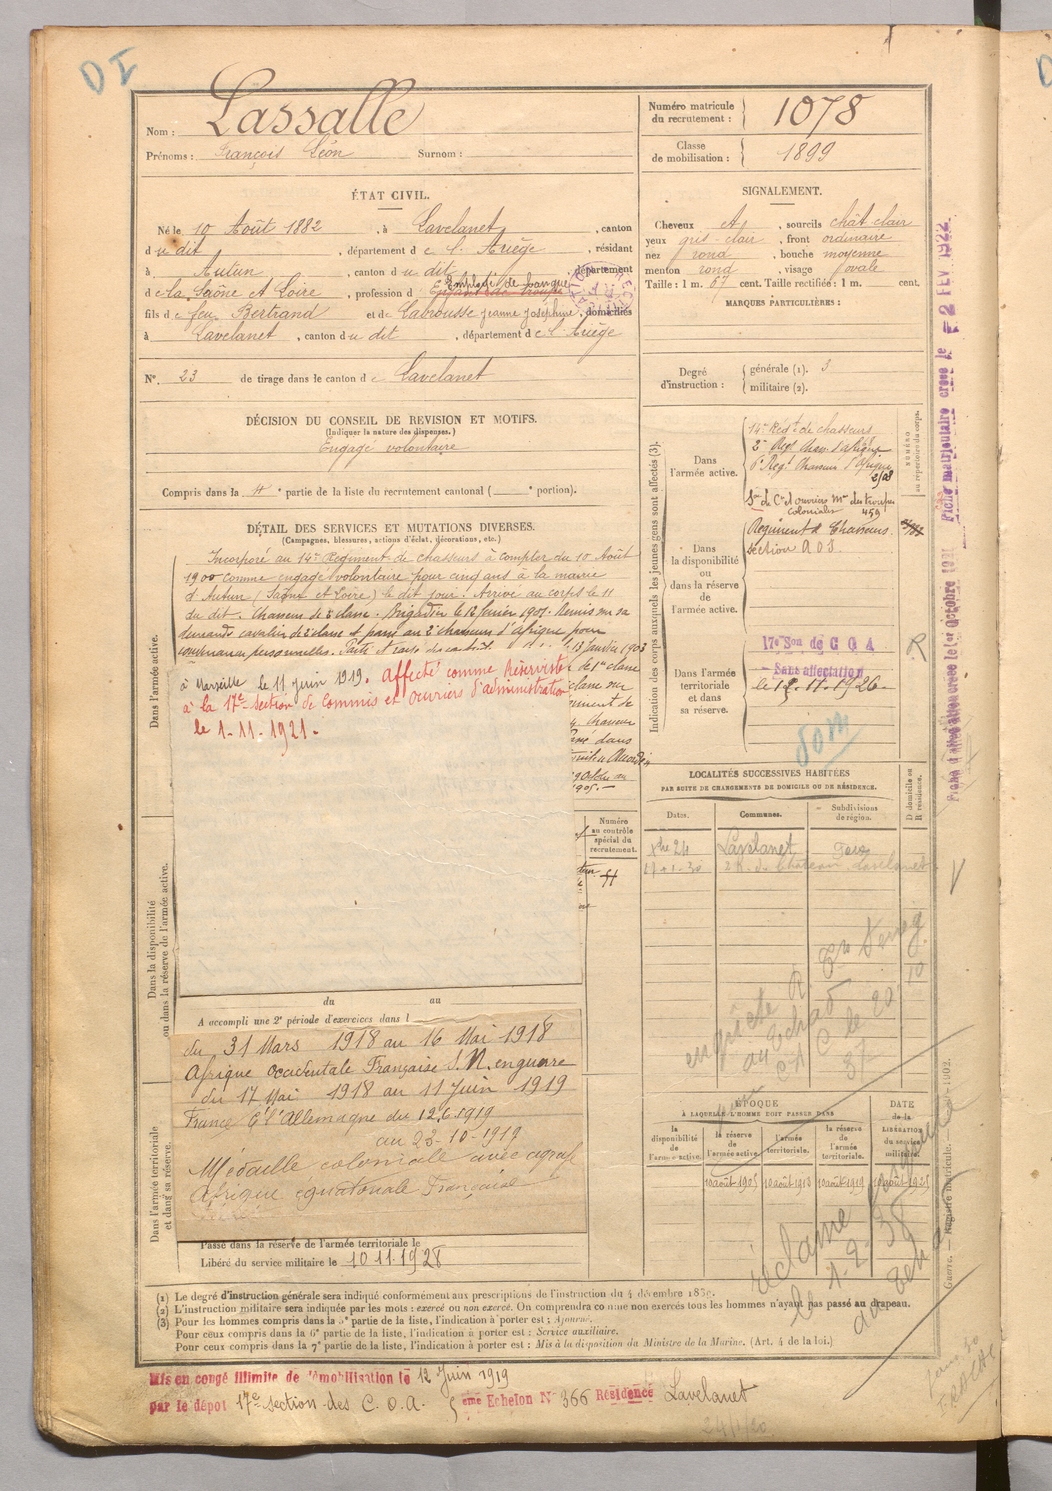 DI
Nom : Lassalle
Prénoms : François Léon Surnom :
Numéro matricule du recrutement : 1078
Classe de mobilisation : 1899
ÉTAT CIVIL.
Né le 10 Août 1882, à Lavelanet, canton
du dit, département de l'Ariège, résidant
à Autun, canton du dit, département
de la Saône et Loire, profession d Employé de banque
fils de feu Bertrand et de Labrousse Jeanne Joséphine, domiciliés
à Lavelanet, canton du dit, département de l'Ariège
N° 23 de tirage dans le canton de Lavelanet
SIGNALEMENT.
Cheveux et, sourcils chât clair
yeux gris-clair, front ordinaire
nez rond, bouche moyenne
menton rond, visage ovale
Taille : 1 m. 67 cent. Taille rectifiée : 1 m. cent.
MARQUES PARTICULIÈRES :
Degré d'instruction : générale (1). 3
militaire (2).
DÉCISION DU CONSEIL DE REVISION ET MOTIFS.
(Indiquer la nature des dispenses.)
Engagé volontaire
Compris dans la 4e partie de la liste du recrutement cantonal ( e portion).
DÉTAIL DES SERVICES ET MUTATIONS DIVERSES.
(Campagnes, blessures, actions d'éclat, décorations, etc.)
Incorporé au 14e Régiment de chasseurs à compter du 10 Août
1900 comme engagé volontaire pour cinq ans à la mairie
d'Autun (Saône et Loire) le dit jour. Arrivé au corps le 11
du dit. Chasseur de 2e classe. Brigadier le 12 janvier 1901. Remis sur sa
demande cavalier de 2e classe et passé au 2e chasseurs d'Afrique pour
convenances personnelles.
13 janvier 1903
de 1e classe
à Marseille le 11 juin 1919. Affecté comme Réserviste
à la 17e section de Commis et Ouvriers d'administration
le 1-11-1921.
1905.
Dans l'armée active.
Dans la disponibilité ou dans la réserve de l'armée active.
Dans l'armée territoriale et dans sa réserve.
Numéro au contrôle spécial du recrutement.
du au
A accompli une 2e période d'exercices dans l
du 31 Mars 1918 au 16 Mai 1918
Afrique Occidentale Française S.N. en guerre
du 17 Mai 1918 au 11 juin 1919
France C l'Allemagne du 12.6.1919
au 23-10-1919
Médaille coloniale avec agrafe
Afrique équatoriale Française
Passé dans la réserve de l'armée territoriale le
Libéré du service militaire le 10.11.1928
Indication des corps auxquels les jeunes gens sont affectés (3).
NUMÉRO au répertoire du corps.
Dans l'armée active.
14e Régt de chasseurs
2e Régt Chas. d'Afrique
6e Régt Chasseurs d'Afrique
2/08
Son de Cis et ouvriers Mre des troupes
coloniales 459
Dans la disponibilité ou dans la réserve de l'armée active.
Régiment de Chasseurs.
section A03.
Dans l'armée territoriale et dans sa réserve.
17e Son de C O A
Sans affectation
le 12.11.1926
R
dom
LOCALITÉS SUCCESSIVES HABITÉES
PAR SUITE DE CHANGEMENTS DE DOMICILE OU DE RÉSIDENCE.
Dates. Communes. Subdivisions de région. D domicile ou R résidence.
8bre 24 Lavelanet Foix
17-1-30 2 R. du Château Lavelanet
ÉPOQUE
À LAQUELLE L'HOMME DOIT PASSER DANS
DATE de la LIBÉRATION du service militaire.
la disponibilité de l'armée active. la réserve de l'armée active. l'armée territoriale. la réserve de l'armée territoriale.
10 août 1905 10 août 1913 10 août 1919 10 août 1925
réclamé
le 1-2-38
Fiche matriculaire créée le - 2 FEV 1922
Fiche d'affectation créée le 1er Octobre 1921
Guerre. — Registre matricule. — 1902.
(1) Le degré d'instruction générale sera indiqué conformément aux prescriptions de l'instruction du 4 décembre 1889.
(2) L'instruction militaire sera indiquée par les mots : exercé ou non exercé. On comprendra comme non exercés tous les hommes n'ayant pas passé au drapeau.
(3) Pour les hommes compris dans la 5e partie de la liste, l'indication à porter est : Ajourné.
Pour ceux compris dans la 6e partie de la liste, l'indication à porter est : Service auxiliaire.
Pour ceux compris dans la 7e partie de la liste, l'indication à porter est : Mis à la disposition du Ministre de la Marine. (Art. 4 de la loi.)
Mis en congé illimité de démobilisation le 12 juin 1919
par le dépot 17e section des C.O.A. 5 ème Echelon N° 366 Résidence Lavelanet
24/1/20